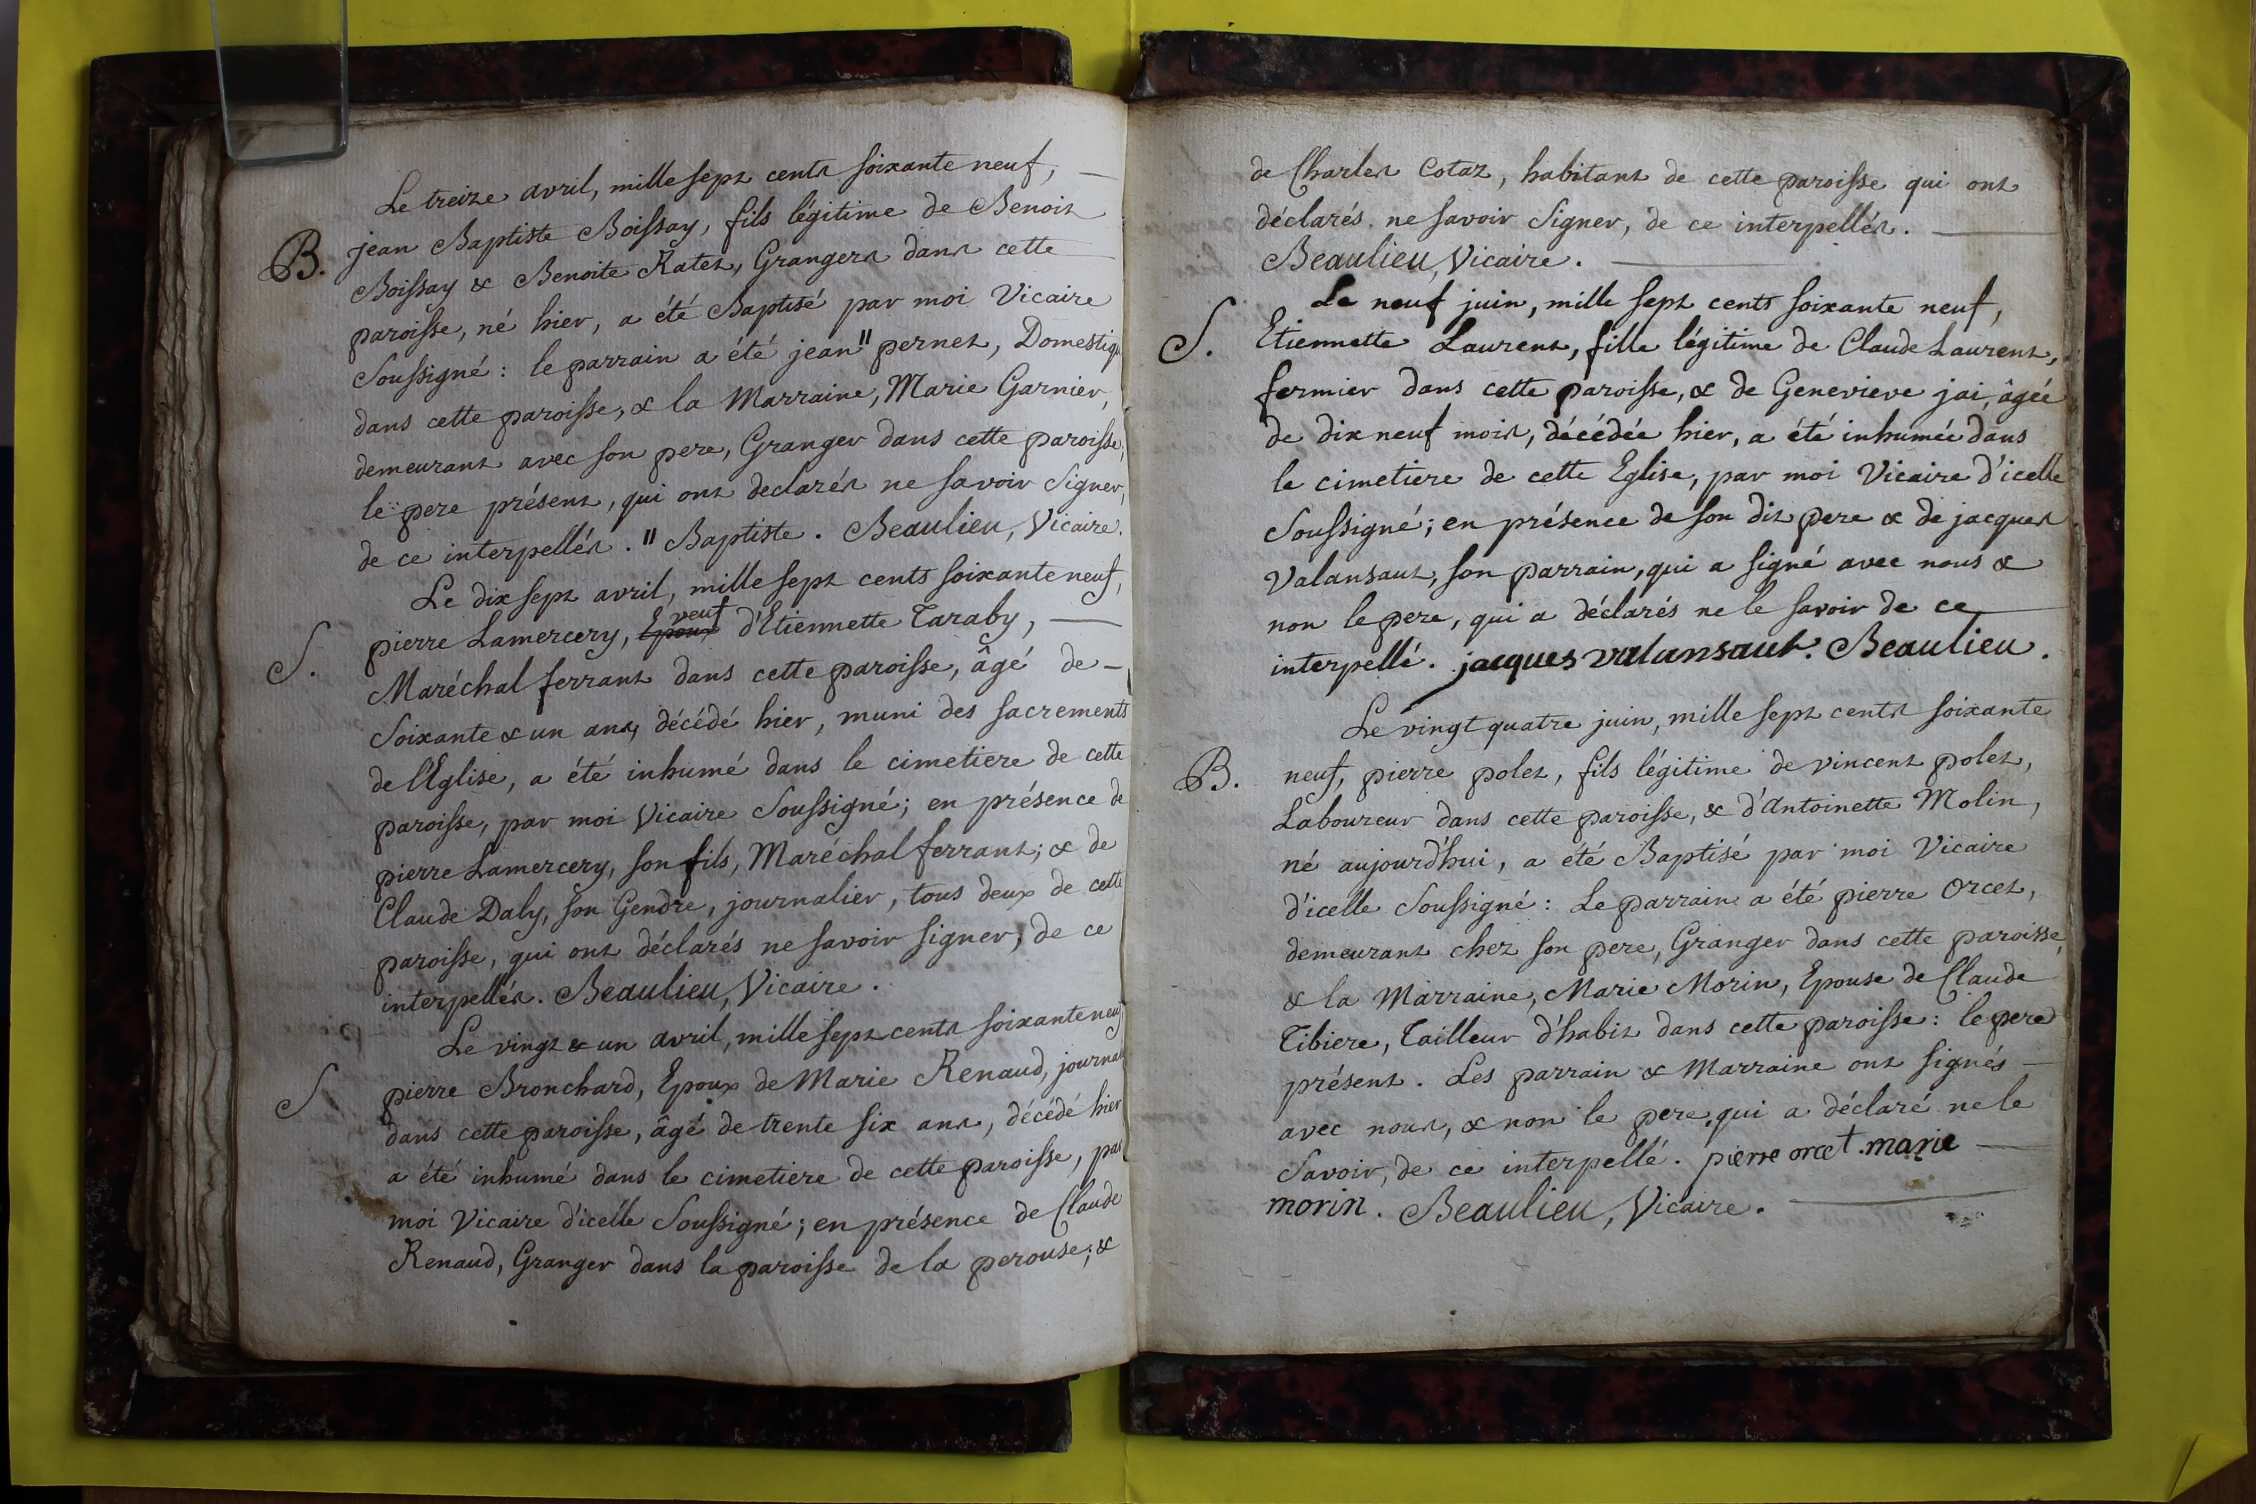 Le treize avril, mille sept cents soixante neuf,
B. jean Baptiste Boissay, fils légitime de Benoit
Boissay & Benoite Ratet, Grangers dans cette
paroisse, né hier, a été Baptisé par moi Vicaire
Soussigné : le parrain a été jean " pernet, Domestiqu
dans cette paroisse, & la Marraine, Marie Garnier,
demeurant avec son pere, Granger dans cette paroisse,
le pere présent, qui ont declarés ne savoir Signer,
de ce interpellés. " Baptiste. Beaulieu, Vicaire.
Le dix sept avril, mille sept cents soixante neuf,
veuf
S. pierre Lamercery, Epoux d'Etiennette Taraby,
Maréchal ferrant dans cette paroisse, âgé de
Soixante & un ans, décédé hier, muni des sacrements
de l'Eglise, a été inhumé dans le cimetiere de cette
paroisse, par moi Vicaire Soussigné; en présence de
pierre Lamercery, son fils, Maréchal ferrant; & de
Claude Daly, son Gendre, journalier, tous deux de cette
paroisse, qui ont déclarés ne savoir signer, de ce
interpellés. Beaulieu, Vicaire.
Le vingt & un avril, mille sept cents soixante neuf
S pierre Bronchard, Epoux de Marie Renaud, journal
dans cette paroisse, âgé de trente six ans, décédé hier
a été inhumé dans le cimetiere de cette paroisse, par
moi Vicaire d'icelle Soussigné; en présence de Claude
Renaud, Granger dans la paroisse de la perouse; &
de Charles Cotaz, habitant de cette paroisse qui ont
déclarés ne savoir Signer, de ce interpellés.
Beaulieu, Vicaire.
Le neuf juin, mille sept cents soixante neuf,
S. Etiennette Laurent, fille légitime de Claude Laurent,
fermier dans cette paroisse, & de Genevieve jai, âgée
de dix neuf mois, décédée hier, a été inhumée dans
le cimetiere de cette Eglise, par moi Vicaire d'icelle
Soussigné; en présence de son dit pere & de jacques
Valansaut, son parrain, qui a signé avec nous &
non le pere, qui a déclarés ne le savoir de ce
interpellé. jacques valansaut. Beaulieu.
Le vingt quatre juin, mille sept cents soixante
B. neuf, pierre polet, fils légitime de vincent polet,
Laboureur dans cette paroisse, & d'Antoinette Molin,
né aujourd'hui, a été Baptisé par moi Vicaire
d'icelle Soussigné : Le parrain a été pierre Orcet,
demeurant chez son pere, Granger dans cette paroisse,
& la Marraine, Marie Morin, Epouse de Claude
Tibiere, Tailleur d'habit dans cette paroisse : le pere
présent. Les parrain & Marraine ont signés
avec nous, & non le pere, qui a déclaré ne le
Savoir, de ce interpellé. pierre orcet. marie
morin. Beaulieu, Vicaire.